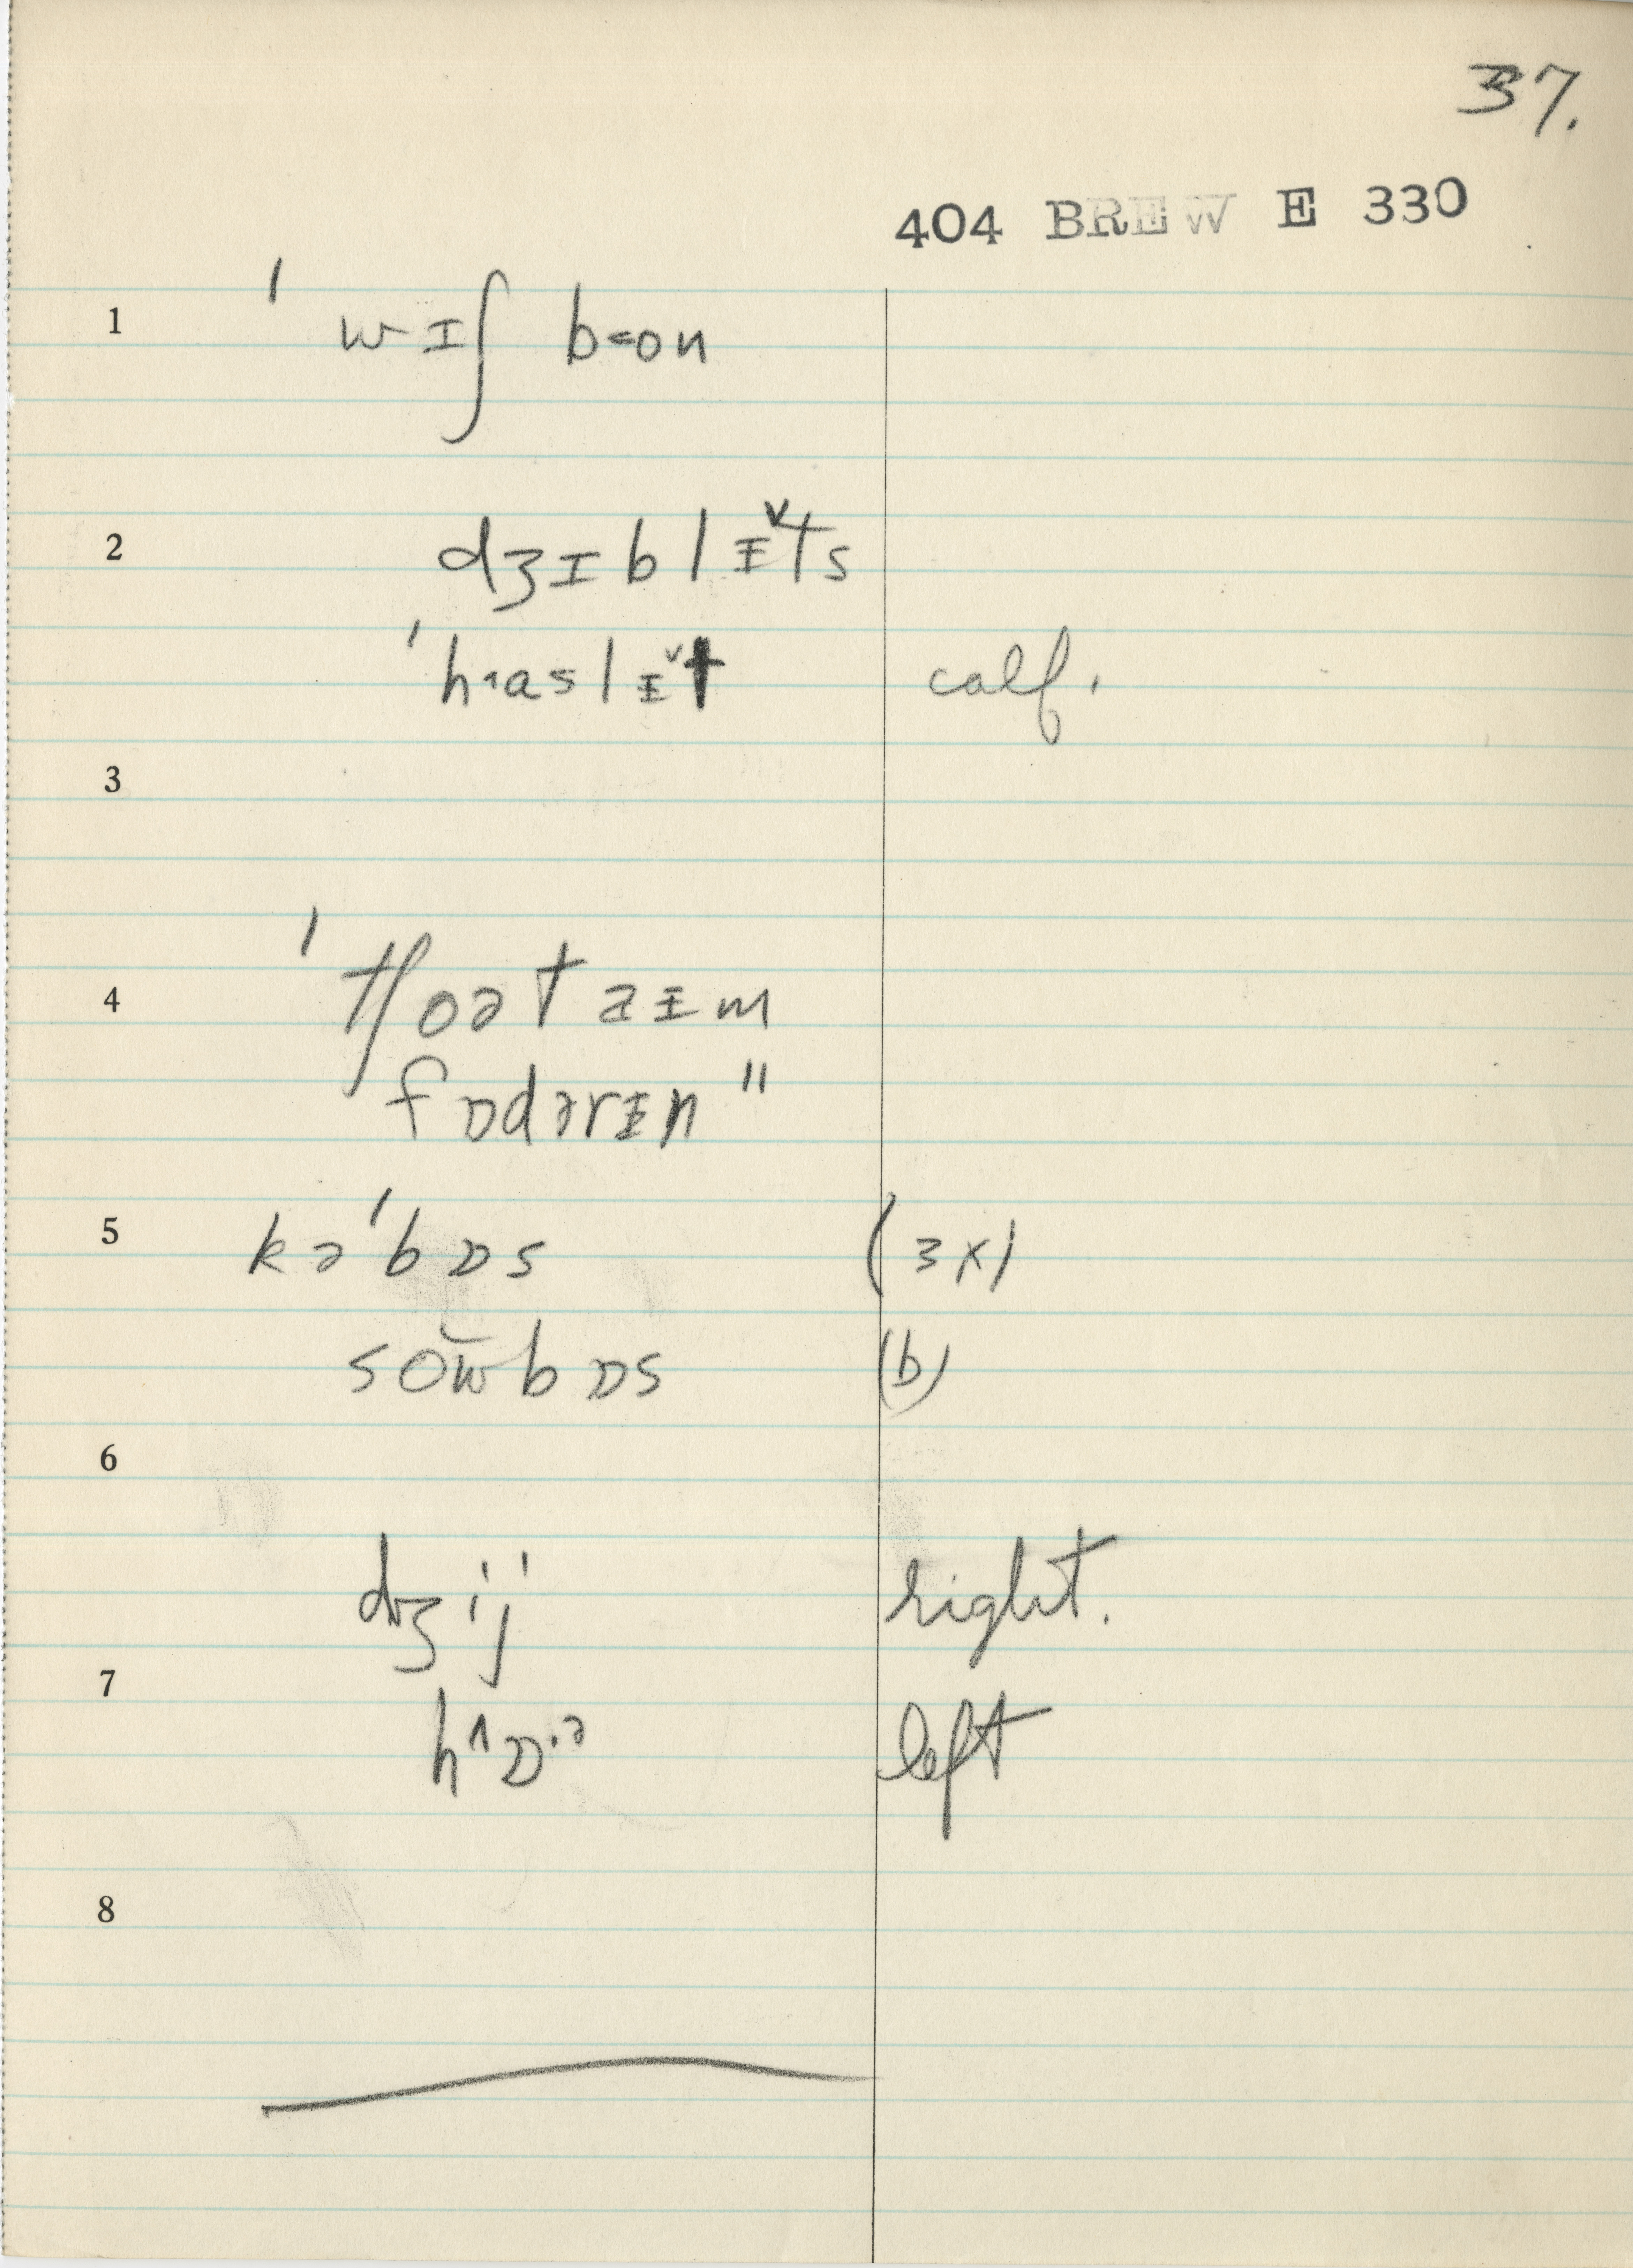 37.
404 BREW E 330
1 ˈwɪʃ bon
2 dʒɪblɪ̵ˇts
ˈhaslɪ̵ˇt calf.
3
4 ˈtʃoət əɪ̵m
fɒdərɪ̵n "
5 kəˈbɒs (3x)
sow̆bɒs (b)
6
dʒij' right.
7
left
8